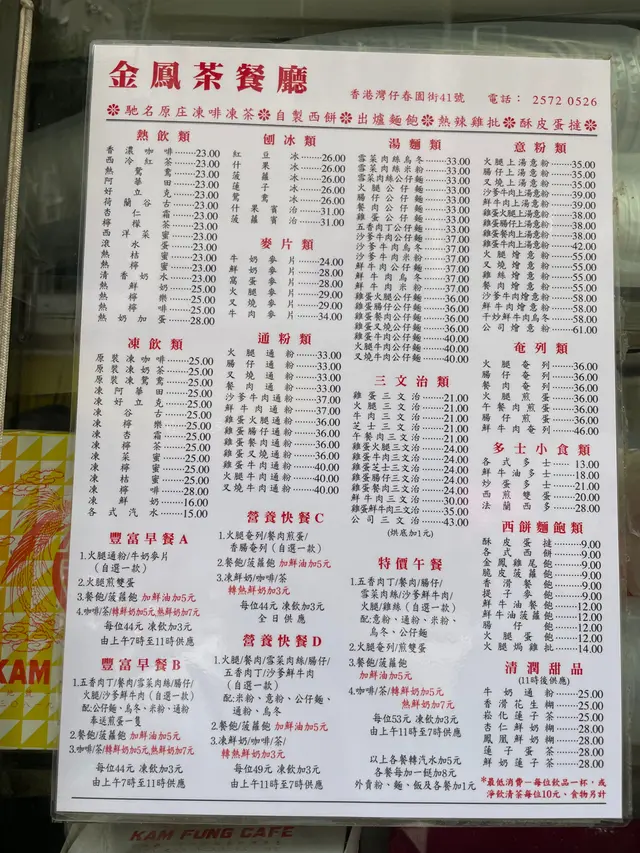 金鳳茶餐廳
香港灣仔春園街41號 電話： 2572 0526
馳名原庄凍啡凍茶 自製西餅 出爐麵飽 熱辣雞批 酥皮蛋撻
熱飲類
香濃咖啡 23.00
西冷紅茶 23.00
熱鴛鴦 23.00
阿華田 23.00
好立克 23.00
荷蘭谷古 23.00
杏仁霜 23.00
檸檬茶 23.00
西洋菜蜜 23.00
滾水蛋 23.00
熱桔蜜 23.00
熱檸蜜 23.00
清香奶水 23.00
熱鮮奶 25.00
熱檸樂 25.00
熱檸啡 25.00
熱奶加蛋 28.00
凍飲類
原裝凍咖啡 25.00
原裝凍奶茶 25.00
原裝凍鴛鴦 25.00
凍阿華田 25.00
凍好立克 25.00
凍谷古 25.00
凍檸樂 25.00
凍杏霜 25.00
凍檸茶 25.00
凍菜蜜 25.00
凍檸蜜 25.00
凍桔蜜 25.00
凍檸啡 28.00
凍鮮奶 16.00
各式汽水 15.00
豐富早餐A
1.火腿通粉/牛奶麥片
(自選一款)
2.火腿煎雙蛋
3.餐飽/菠蘿飽 加鮮油加5元
4.咖啡/茶/轉鮮奶加5元,熱鮮奶加7元
每位44元 凍飲加3元
由上午7時至11時供應
豐富早餐B
1.五香肉丁/餐肉/雪菜肉絲/腸仔/
火腿/沙爹鮮牛肉(自選一款)
配:公仔麵、烏冬、米粉、通粉
奉送煎蛋一隻
2.餐飽/菠蘿飽 加鮮油加5元
3.咖啡/茶/轉凍鮮奶加5元,熱鮮奶加7元
每位44元 凍飲加3元
由上午7時至11時供應
刨冰類
紅豆冰 26.00
什果冰 26.00
菠蘿冰 26.00
蓮子冰 26.00
鴛鴦冰 26.00
什果賓治 31.00
菠蘿賓治 31.00
麥片類
牛奶麥片 24.00
鮮奶麥片 28.00
窩蛋麥片 28.00
火腿麥片 29.00
叉燒麥片 29.00
牛肉麥片 34.00
通粉類
火腿通粉 33.00
腸仔通粉 33.00
叉燒通粉 33.00
餐肉通粉 33.00
沙爹牛肉通粉 37.00
鮮牛肉通粉 37.00
雞蛋火腿通粉 36.00
雞蛋腸仔通粉 36.00
雞蛋餐肉通粉 36.00
雞蛋叉燒通粉 36.00
雞蛋牛肉通粉 40.00
火腿牛肉通粉 40.00
叉燒牛肉通粉 40.00
營養快餐C
1.火腿奄列/餐肉煎蛋/
香腸奄列(自選一款)
2.餐飽/菠蘿飽 加鮮油加5元
3.凍鮮奶/咖啡/茶
轉熱鮮奶加3元
每位44元 凍飲加3元
全日供應
營養快餐D
1.火腿/餐肉/雪菜肉絲/腸仔/
五香肉丁/沙爹鮮牛肉
(自選一款)
配:米粉、意粉、公仔麵、
通粉、烏冬
2.餐飽/菠蘿飽 加鮮油加5元
3.凍鮮奶/咖啡/茶/
轉熱鮮奶加3元
每位49元 凍飲加3元
由上午11時至7時供應
湯麵類
雪菜肉絲烏冬 33.00
雪菜肉絲米粉 33.00
雪菜肉絲公仔麵 33.00
火腿公仔麵 33.00
腸仔公仔麵 33.00
餐肉公仔麵 33.00
雞蛋公仔麵 33.00
五香肉丁公仔麵 33.00
沙爹牛肉公仔麵 37.00
沙爹牛肉烏冬 37.00
沙爹牛肉米粉 37.00
鮮牛肉公仔麵 37.00
鮮牛肉烏冬 37.00
鮮牛肉米粉 37.00
雞蛋火腿公仔麵 36.00
雞蛋腸仔公仔麵 36.00
雞蛋餐肉公仔麵 36.00
雞蛋叉燒公仔麵 36.00
雞蛋牛肉公仔麵 40.00
火腿牛肉公仔麵 40.00
叉燒牛肉公仔麵 40.00
三文治類
雞蛋三文治 21.00
火腿三文治 21.00
牛肉三文治 21.00
芝士三文治 21.00
午餐肉三文治 21.00
雞蛋火腿三文治 24.00
雞蛋牛肉三文治 24.00
雞蛋芝士三文治 24.00
雞蛋餐肉三文治 24.00
鮮牛肉三文治 30.00
雞蛋鮮牛肉三文治 35.00
公司三文治 43.00
(烘底加1元)
特價午餐
1.五香肉丁/餐肉/腸仔/
雪菜肉絲/沙爹鮮牛肉/
火腿/雞絲(自選一款)
配:意粉、通粉、米粉、
烏冬、公仔麵
2.火腿煎雙蛋/煎蛋
3.餐飽/菠蘿飽
加鮮油加5元
4.咖啡/茶/轉鮮奶加5元
熱鮮奶加7元
每位53元 凍飲加3元
由上午11時至7時供應
以上各餐轉汽水加5元
各餐每加一餸加8元
外賣粉、麵、飯及各餐加1元
意粉類
火腿上湯意粉 35.00
腸仔上湯意粉 35.00
叉燒上湯意粉 35.00
沙爹牛肉上湯意粉 39.00
鮮牛肉上湯意粉 39.00
雞蛋火腿上湯意粉 38.00
雞蛋腸仔上湯意粉 38.00
雞蛋餐肉上湯意粉 38.00
雞蛋牛肉上湯意粉 42.00
火腿燴意粉 55.00
叉燒燴意粉 55.00
雞絲燴意粉 55.00
餐肉燴意粉 55.00
沙爹牛肉燴意粉 58.00
鮮牛肉燴意粉 58.00
干炒鮮牛肉烏冬 58.00
公司燴意粉 61.00
奄列類
火腿奄列 36.00
腸仔奄列 36.00
餐肉奄列 36.00
火腿煎蛋 36.00
午餐肉煎蛋 36.00
腸仔煎蛋 36.00
鮮牛肉奄列 46.00
多士小食類
各式多士 13.00
鮮牛油多士 18.00
炒蛋多士 21.00
西煎雙蛋 20.00
法蘭西多士 28.00
西餅麵飽類
酥皮蛋撻 9.00
各式西餅 9.00
金鳳雞尾飽 9.00
脆皮菠蘿飽 9.00
香滑餐飽 9.00
提子麥飽 9.00
鮮牛油餐飽 12.00
鮮牛油菠蘿飽 12.00
腸仔飽 12.00
火腿蛋飽 12.00
火腿焗雞批 14.00
清潤甜品
(11時後供應)
牛奶通粉 25.00
香滑花生糊 25.00
崧化蓮子茶 25.00
杏仁鮮奶糊 28.00
鳳凰鮮奶糊 28.00
蓮子蛋茶 28.00
鮮奶蓮子茶 28.00
*最低消費一每位飲品一杯，或
淨飲清茶每位10元、食物另計
KAM
KAM FUNG CAFE